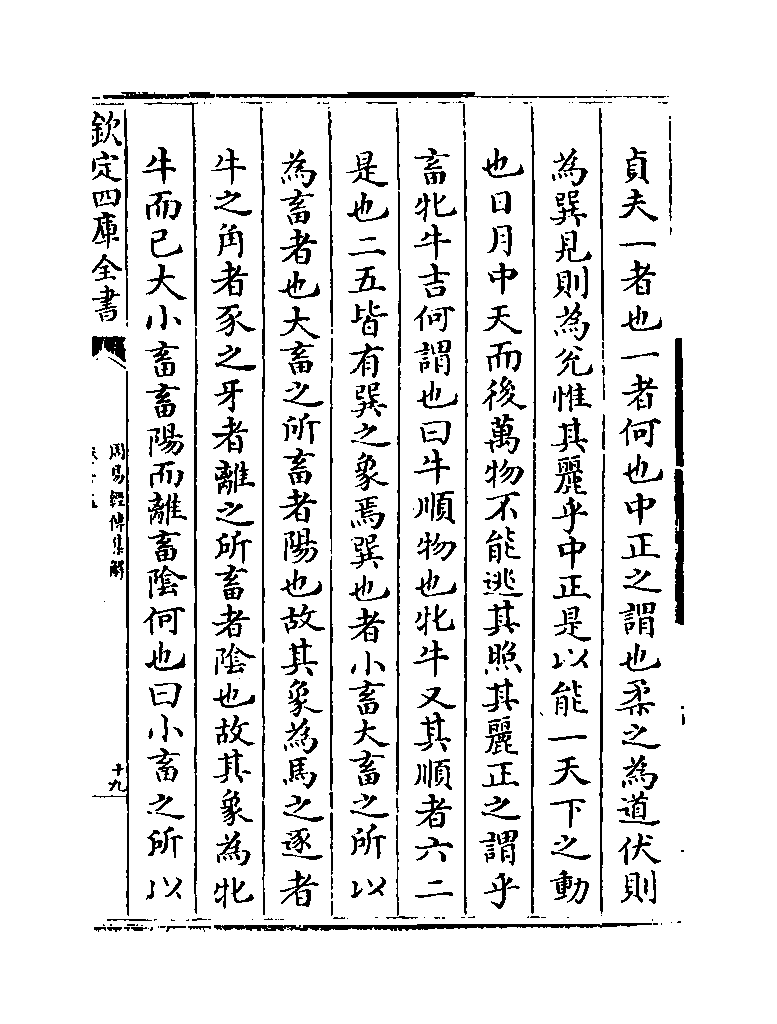 貞夫一者也一者何也中正之謂也柔之為道伏則
為巽見則為兊惟其麗乎中正是以能一天下之動
也日月中天而後萬物不能逃其照其麗正之謂乎
畜牝牛吉何謂也曰牛順物也牝牛又其順者六二
是也二五皆有巽之象焉巽也者小畜大畜之所以
為畜者也大畜之所畜者陽也故其象為馬之逐者
牛之角者豕之牙者離之所畜者陰也故其象為牝
牛而已大小畜畜陽而離畜陰何也曰小畜之所以
欽定四庫全書
周易經傳集解
十九